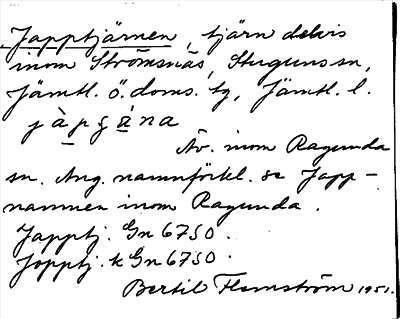 Japptjärnen, tjärn delvis
inom Strömsnäs, Stuguns sn,
Jämtl. ö. doms. tg, Jämtl. l.
jàpʂäna
Äv. inom Ragunda
sn. Ang. namnförkl. se Japp-
namnen inom Ragunda.
Japptj. Gn 6750.
Japptj. k Gn 6750.
Bertil Flemström 1951.